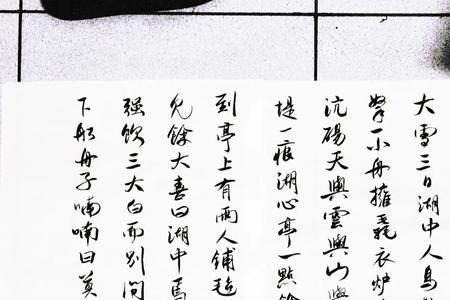 大雪三日湖中人鳥
拏一小舟擁毳衣炉
沆碭天與雲與山與
堤一痕湖心亭一點餘
到亭上有兩人鋪氈
見餘大喜曰湖中焉
强飲三大白而別問
下船舟子喃喃曰莫